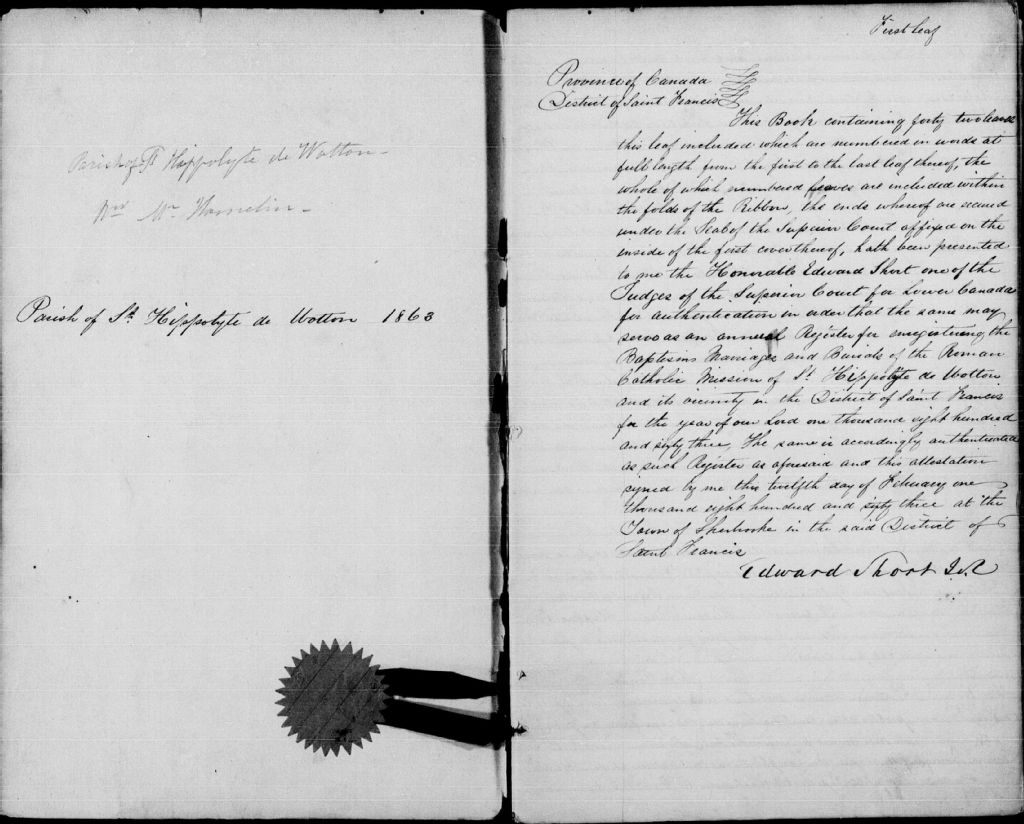 Parish of St Hippolyte de Wotton
Mr Hamelin
Parish of St. Hippolyte de Wotton 1863
First leaf
Province of Canada
District of Saint Francis
This Book containing forty two leaves
this leaf included which are numbered in words at
full length from the first to the last leaf thereof, the
whole of which numbered leaves are included within
the folds of the Ribbon, the ends whereof are secured
under the Seal of the Superior Court affixed on the
inside of the first cover thereof, hath been presented
to me the Honorable Edward Short one of the
Judges of the Superior Court for Lower Canada
for authentication in order that the same may
serve as an annual Register for enregistering the
Baptisms Marriages and Burials of the Roman
Catholic Mission of St. Hippolyte de Wotton
and its vicinity in the District of Saint Francis
for the year of our Lord one thousand eight hundred
and sixty three, The same is accordingly authenticated
as such Register as aforesaid and this attestation
signed by me this twelfth day of February one
thousand eight hundred and sixty three at the
Town of Sherbrooke in the said District of
Saint Francis
Edward Short